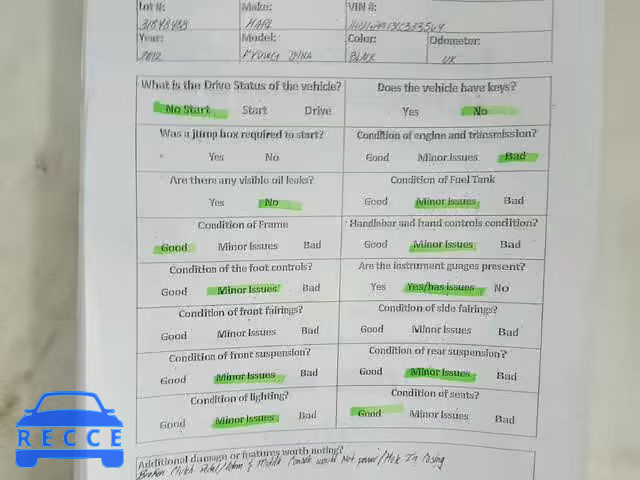 Lot #: Make: VIN #:
31848488 HARL
Year: Model: Color: Odometer:
2012 DYNA BLACK UK
What is the Drive Status of the vehicle? Does the vehicle have keys?
No Start Start Drive Yes No
Was a jump box required to start? Condition of engine and transmission?
Yes No Good Minor Issues Bad
Are there any visible oil leaks? Condition of Fuel Tank
Yes No Good Minor Issues Bad
Condition of Frame Handlebar and hand controls condition?
Good Minor Issues Bad Good Minor Issues Bad
Condition of the foot controls? Are the instrument guages present?
Good Minor Issues Bad Yes Yes/has issues No
Condition of front fairings? Condition of side fairings?
Good Minor Issues Bad Good Minor Issues Bad
Condition of front suspension? Condition of rear suspension?
Good Minor Issues Bad Good Minor Issues Bad
Condition of lighting? Condition of seats?
Good Minor Issues Bad Good Minor Issues Bad
Additional damage or features worth noting?
Broken Clutch Middle Console would Not power / Hole In Casing
RECCE